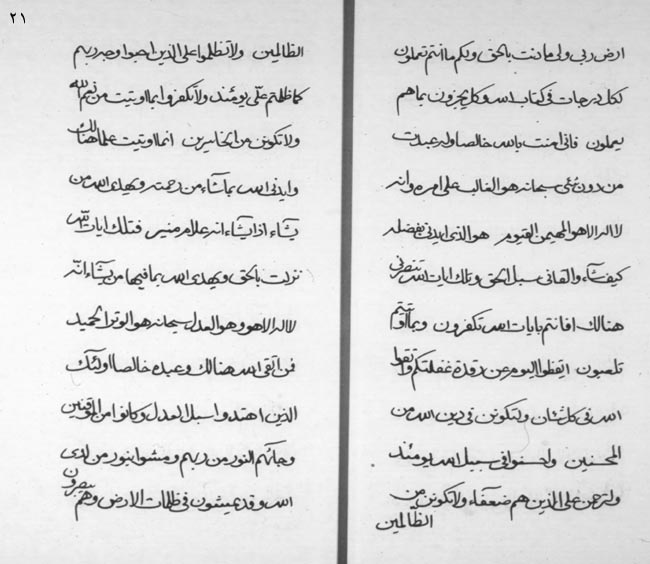 ٢١
ارض ربى ولى مادنت بالحق ولكم ما انتم تعملون
لكل درجات فى كتاب الله وكل يجزون بما هم
يعملون فانى امنت بالله خالصا وله عبدت
من دون شىء سبحانه هو الغالب على امره وانه
لا اله الا هو المهيمن القيوم هو الذى ايدنى بفضله
كيف شاء والقانى سبل الحق وتلك ايات الله تنصرنى
هنالك افانتم بايات الله تكفرون وبما اوتيتم
تلعبون اتقظوا اليوم عن رقدة غفلتكم واتقوا
الله فى كل شان ولتكونن فى دين الله من
المحسنين واحسنوا فى سبيل الله يومئذ
ولترحمن على الذين هم ضعفاء ولا تكونن من
الظالمين
الظالمين ولا تظلموا على الذين احبوا وجه ربهم
كما ظلمتم على يومئذ ولا تكفروا بما اوتيت من نعم الله
ولا تكونن من الخاسرين انما اوتيت علما هنالك
وايدنى الله بما شاء من رحمته ويهدى الله من
يشاء اذا يشاء انه علام منير فتلك ايات الله
نزلت بالحق ويهدى الله بما فيها من يشاء انه
لا اله الا هو وهو العدل سبحانه هو الوتر الحميد
فمن اتقى الله هنالك وعبده خالصا اولئك
الذين اهتدوا سبل العدل وكانوا من الموقنين
وجائهم النور من ربهم ومشوا بنور من لدى
الله وقد يمشون فى ظلمات الارض وهم يبصرون